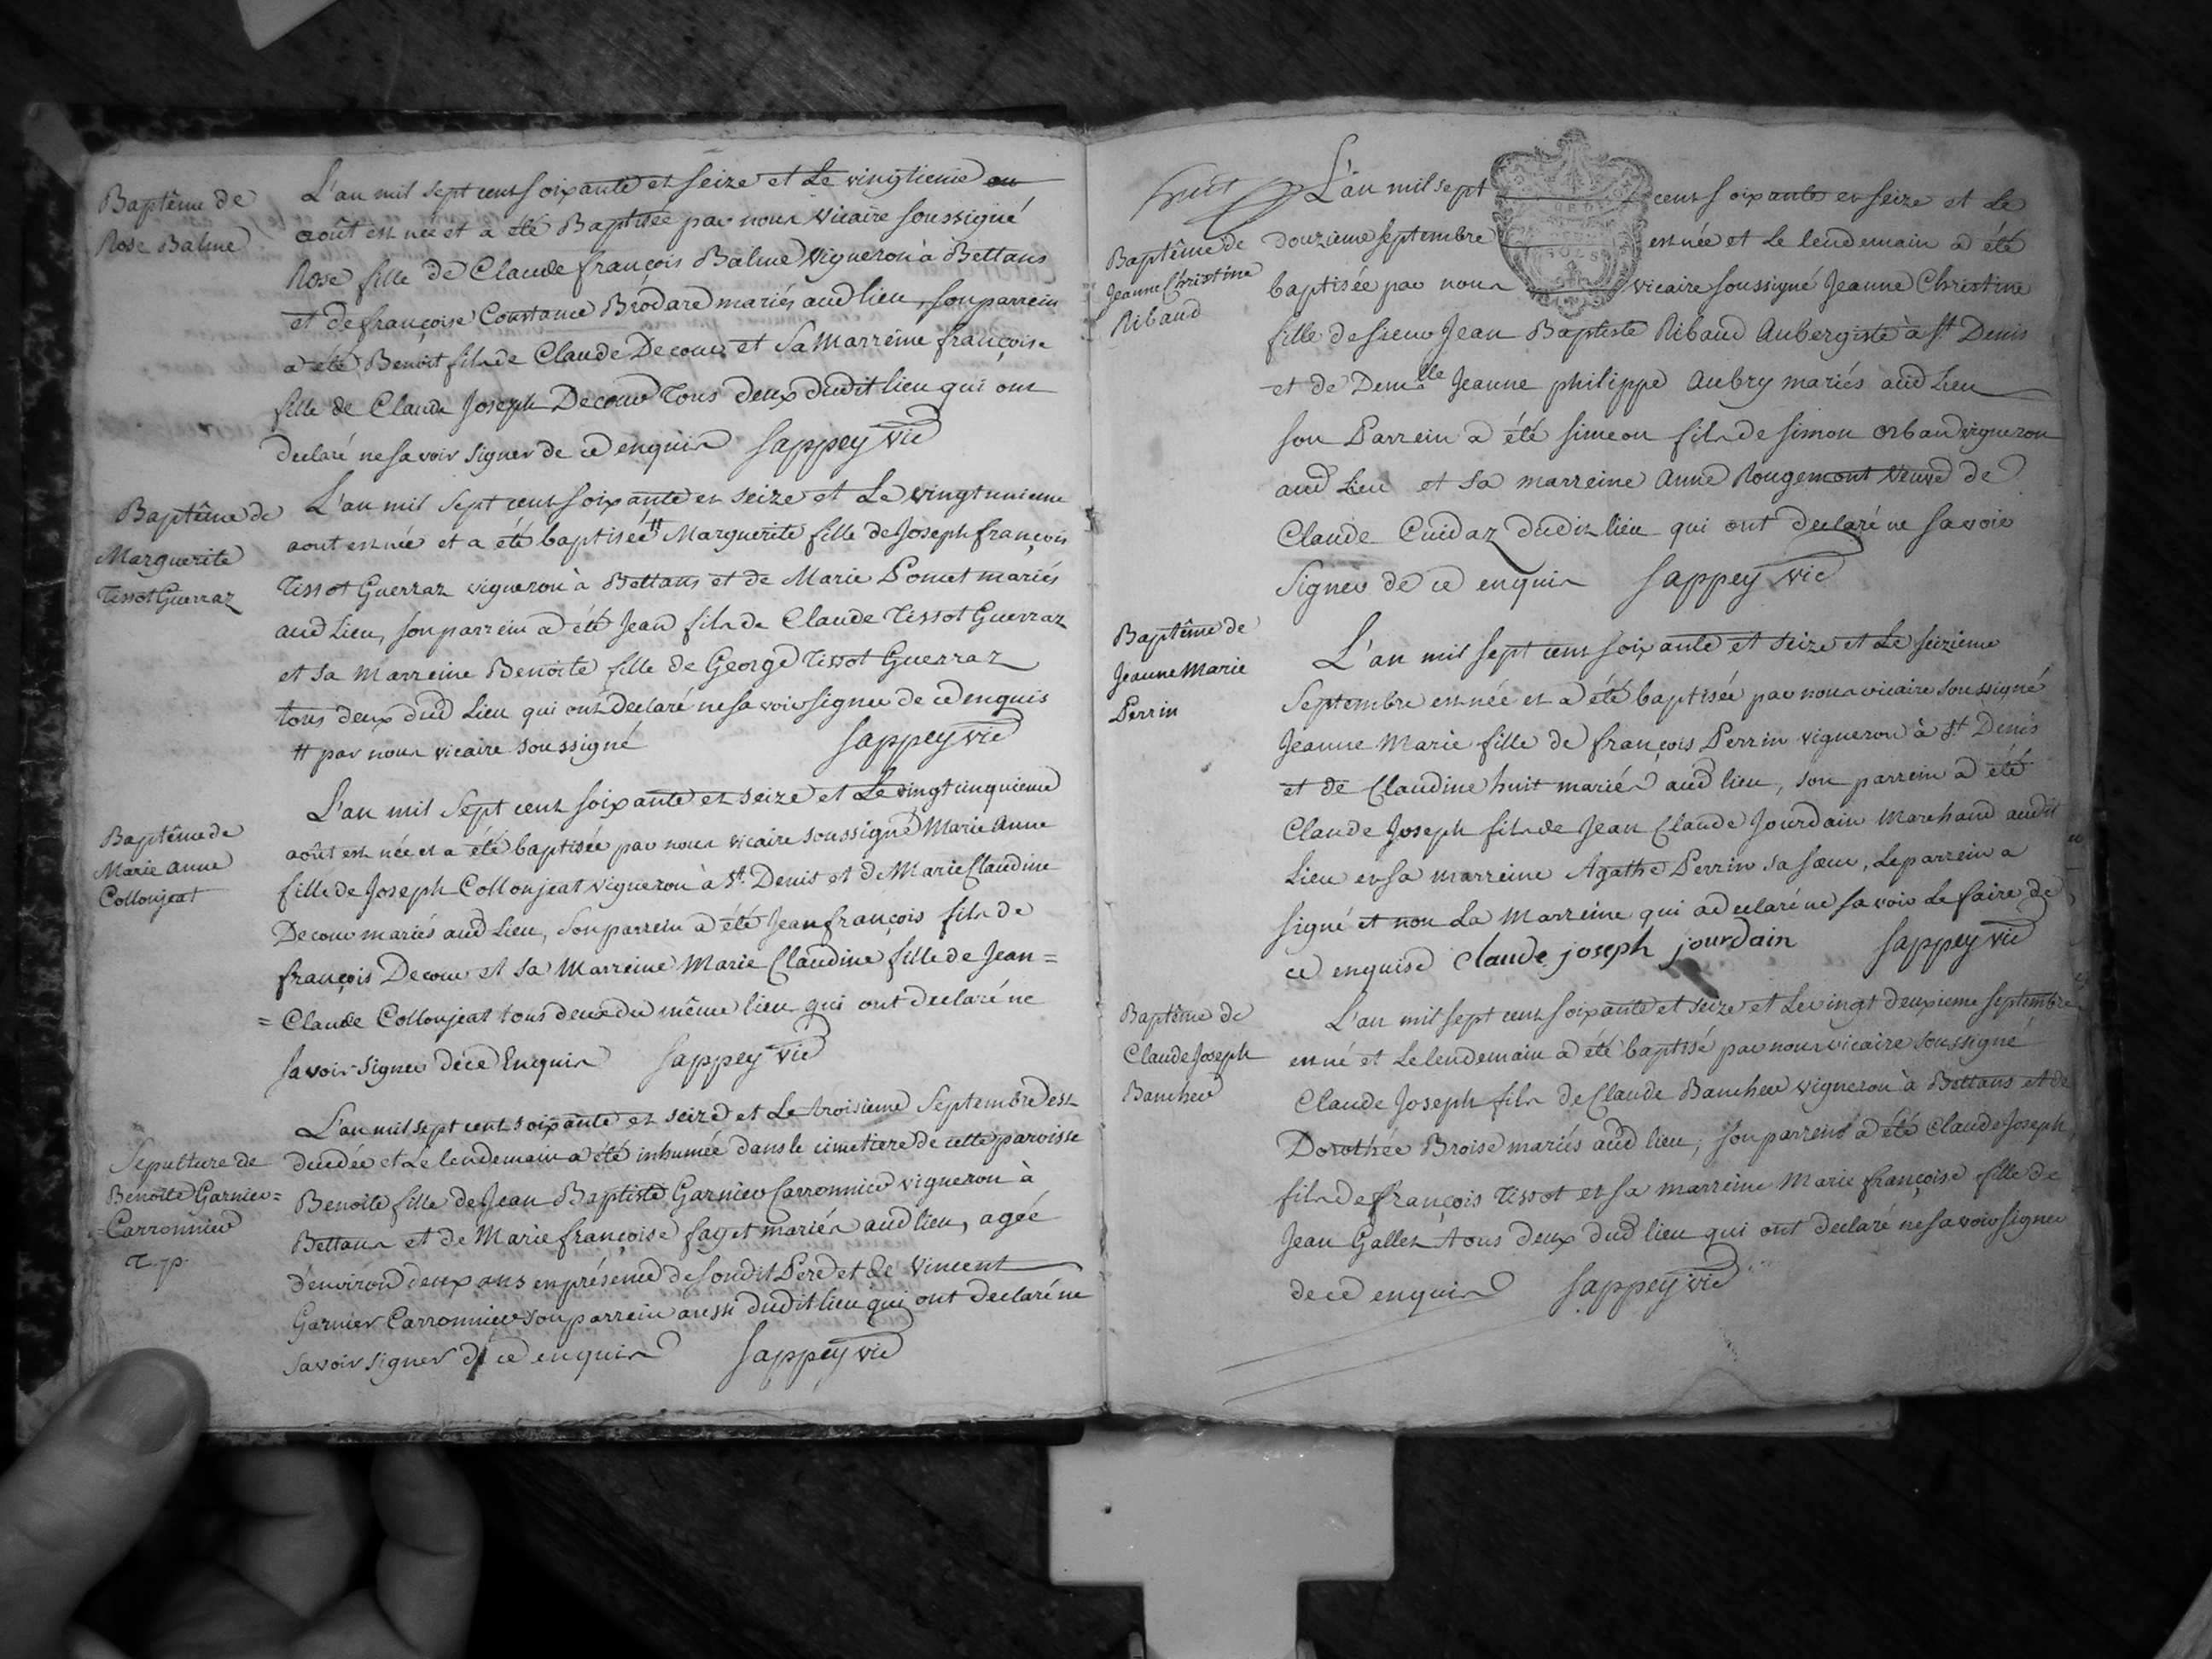 Baptême de
Rose Balme
L'an mil sept cent soixante et seize et le vingtieme
août est née et a été Baptisée par nous vicaire soussigné
Rose fille de Claude françois Balme vigneron à Bettans
et de françoise Constance Brodard mariés aud lieu, son parrein
a été Benoit fils de Claude Decour et sa Marreine françoise
fille de Claude Joseph Decour tous deux dudit lieu qui ont
declaré ne savoir signer de ce enquis sappey vic
Baptême de
Marguerite
Tissot Guerraz
L'an mil sept cent soixante et seize et le vingt unieme
aout est née et a été baptisée # Marguerite fille de Joseph françois
Tissot Guerraz vigneron à Bettans et de Marie Pomet mariés
aud Lieu, son parrein a été Jean fils de Claude Tissot Guerraz
et sa Marreine Benoite fille de George Tissot Guerraz
tous deux dud Lieu qui ont declaré ne savoir signer de ce enquis
# par nous vicaire soussigné sappey vic
Baptême de
Marie anne
Collonjeat
L'an mil sept cent soixante et seize et Le vingt cinquieme
août est née et a été baptisée par nous vicaire soussigné Marie Anne
fille de Joseph Collonjeat vigneron à St. Denis et de Marie Claudine
Decour mariés aud Lieu, son parrein a été Jean françois fils de
françois Decour et sa Marreine Marie Claudine fille de Jean=
= Claude Collonjeat tous deux du même lieu qui ont declaré ne
savoir signer de ce Enquis sappey vic
Sepulture de
Benoite Garnier=
=Carronnier
L'an mil sept cent soixante et seize et Le troisieme Septembre est
decedée et Le lendemain a été inhumée dans le cimetiere de cette paroisse
Benoite fille de Jean Baptiste Garnier Carronnier vigneron à
Bettans et de Marie françoise fayet mariés aud lieu, agée
denviron deux ans en présence de sondit Pere et de Vincent
Garnier Carronnier son parrein aussi dudit lieu qui ont declaré ne
savoir signer de ce enquis sappey vic
huit
Baptême de
Jeanne Christine
Ribaud
L'an mil sept cent soixante et seize et Le
douzieme septembre est née et le lendemain a été
baptisée par nous vicaire soussigné Jeanne Christine
fille de sieur Jean Baptiste Ribaud Aubergiste à St Denis
et de Demlle Jeanne philippe Aubry mariés aud Lieu
son Parrein a été simeon fils de simon orband vigneron
aud Lieu et sa marreine Anne Rougemont veuve de
Claude Cuidaz dudit lieu qui ont declaré ne savoir
signer de ce enquis sappey vic
Baptême de
Jeanne Marie
Perrin
L'an mil sept cent soixante et seize et Le seizieme
Septembre est née et a été baptisée par nous vicaire soussigné
Jeanne Marie fille de françois Perrin vigneron à St. Denis
et de Claudine huit mariés aud lieu, son parrein a été
Claude Joseph fils de Jean Claude Jourdain Marchand audit
Lieu et sa marreine Agathe Perrin sa sœur, Le parrein a
signé et non La Marreine qui a declaré ne savoir Le faire de
ce enquise Claude joseph jourdain sappey vic
Baptême de
Claude Joseph
Bancher
L'an mil sept cent soixante et seize et Le vingt deuxieme septembre
est né et Le lendemain a été baptisé par nous vicaire soussigné
Claude Joseph fils de Claude Bancher vigneron à Bettans et de
Dorothée Broise mariés aud lieu, son parrein a été Claude Joseph
fils de françois Tissot et sa marreine Marie françoise fille de
Jean Gallet tous deux dud lieu qui ont declaré ne savoir signer
de ce enquis sappey vic